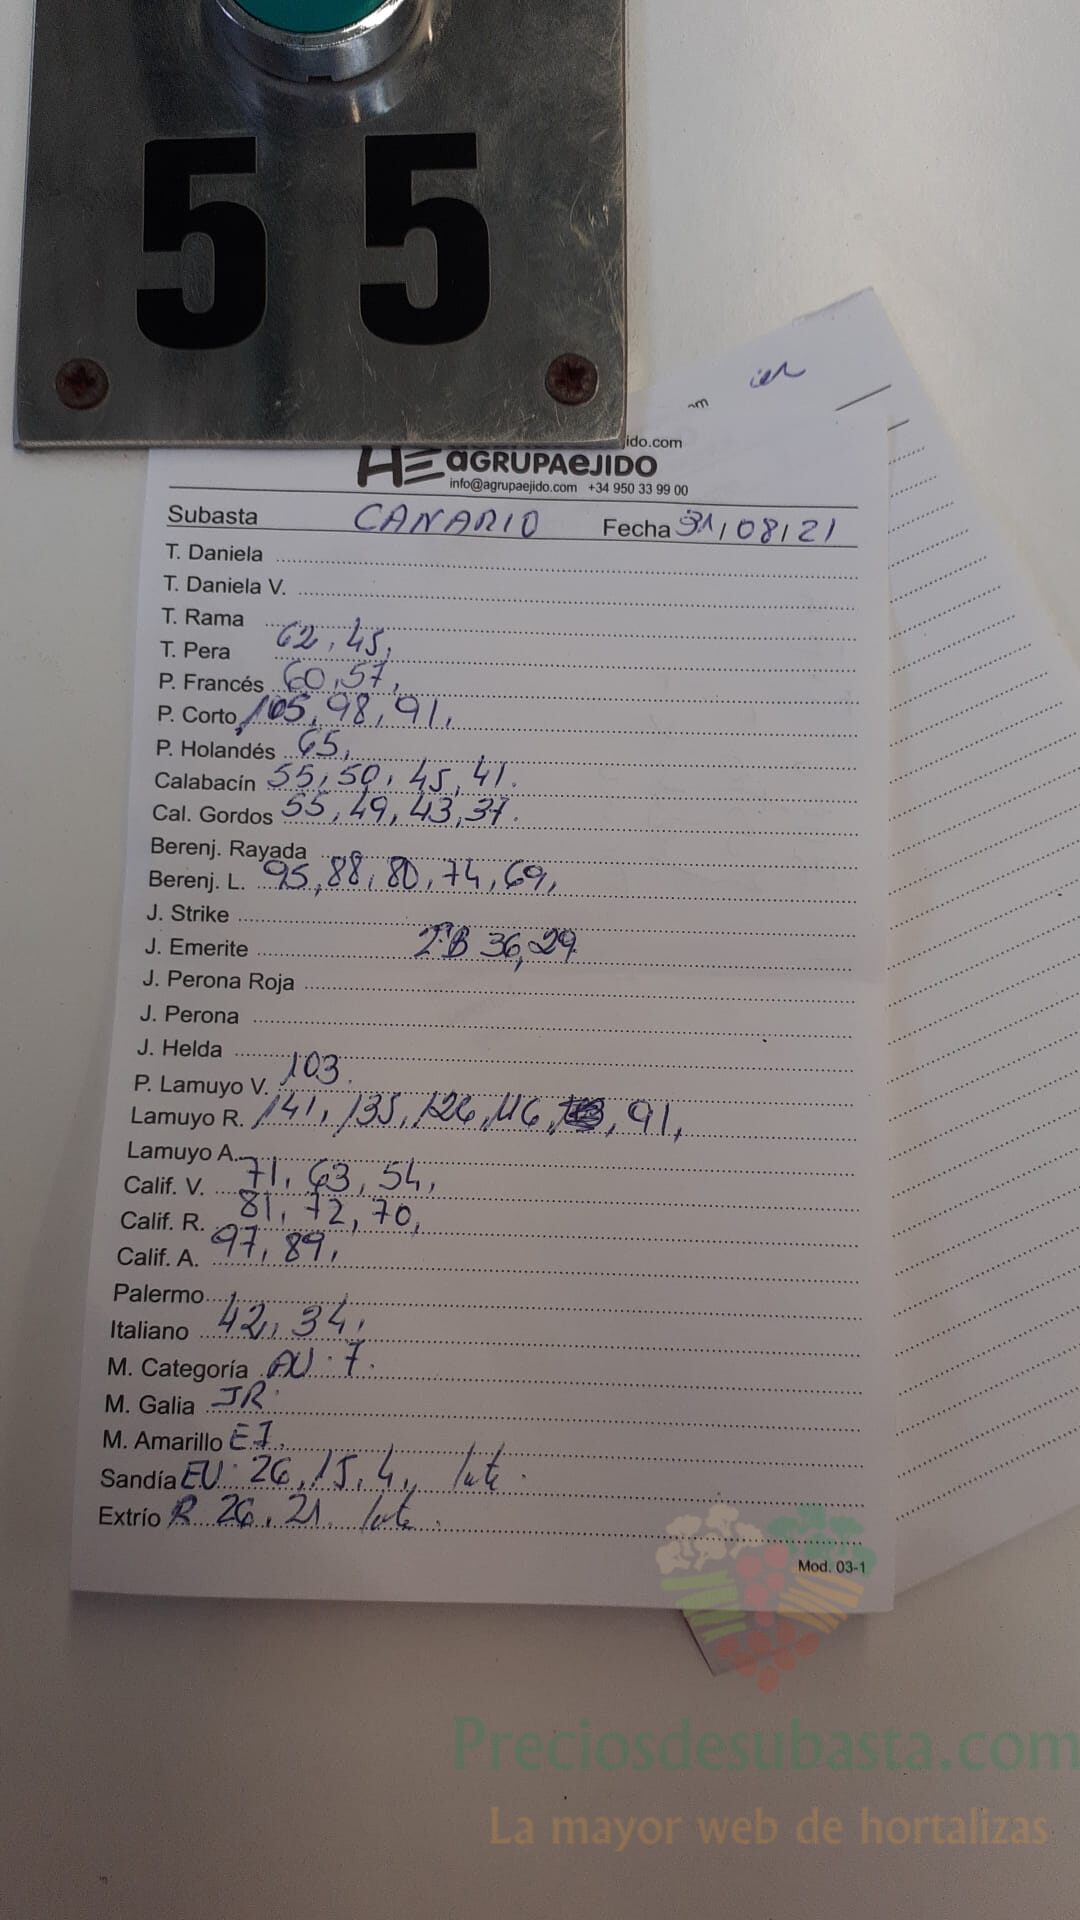 55
ido.com
HE aGRUPAeJIDO
info@agrupaejido.com +34 950 33 99 00
Subasta CANARIO Fecha 31/08/21
T. Daniela
T. Daniela V.
T. Rama
T. Pera 62, 45,
P. Francés 60, 57,
P. Corto 105, 98, 91,
P. Holandés 65,
Calabacín 55, 50, 45, 41.
Cal. Gordos 55, 49, 43, 37.
Berenj. Rayada
Berenj. L. 95, 88, 80, 74, 69,
J. Strike
J. Emerite 2ªB 36, 29.
J. Perona Roja
J. Perona
J. Helda
P. Lamuyo V. 103.
Lamuyo R. 141, 135, 126, 116, 91,
Lamuyo A.
Calif. V. 71, 63, 54,
Calif. R. 81, 72, 70,
Calif. A. 97, 89,
Palermo
Italiano 42, 34,
M. Categoría AU. 7.
M. Galia JR.
M. Amarillo
Sandía EU. 26, 15, 4,
Extrío R 26, 21.
Mod. 03-1
Preciosdesubasta.com
La mayor web de hortalizas